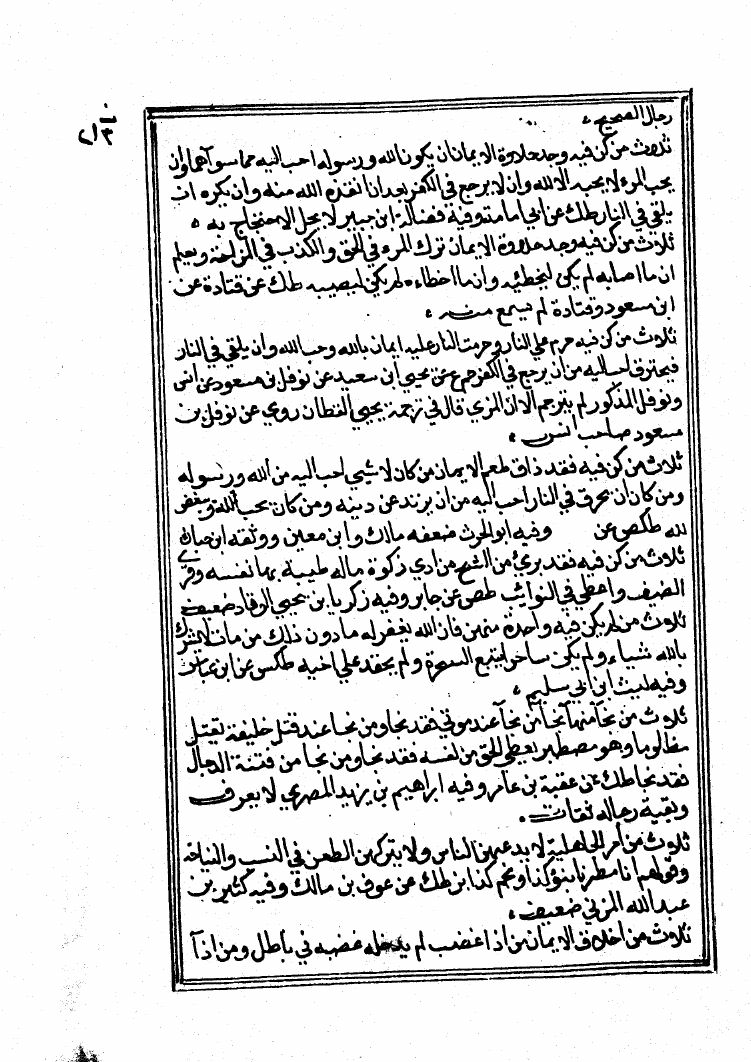 رجال الصحيح ،
ثلاث من كن فيه وجد حلاوة الايمان ان يكون الله ورسوله احب اليه مما سواهما وان
يحب المرء لا يحبه الا لله وان لا يرجع في الكفر بعد ان انقذه الله منه وان يكره ان
يلقى في النار طك عن ابي امامة وفيه فضالة ابن جبير لا يحل الاحتجاج به ،
ثلاث من كن فيه وجد حلاوة الايمان ترك المراء في الحق والكذب في المزاحة ويعلم
ان ما اصابه لم يكن ليخطئه وان ما اخطاءه لم يكن ليصيبه طك عن قتادة عن
ابن مسعود وقتادة لم يسمع منه ،
ثلاث من كن فيه حرم على النار وحرمت النار عليه ايمان بالله وحب الله وان يلقى في النار
فيحترق احب اليه من ان يرجع في الكفر حم ع عن يحيى ابن سعيد عن نوفل بن مسعود عن انس
ونوفل المذكور لم يترجم الا ان المزي قال في ترجمة يحيى القطان روى عن نوفل بن
مسعود صاحب انس ،
ثلاث من كن فيه فقد ذاق طعم الايمان من كان لا شيئ احب اليه من الله ورسوله
ومن كان ان يحرق في النار احب اليه من ان يرتد عن دينه ومن كان يحب لله ويبغض
لله طكص عن وفيه ابو الحرث ضعفه مالك وابن معين ووثقه ابن حبان
ثلاث من كن فيه فقد برئ من الشح من ادى زكوة ماله طيبة بها نفسه وقرى
الضيف واعطى في النوائب طص عن جابر وفيه زكريا بن يحيى الوقاد ضعيف
ثلاث من لم يكن فيه واحدة منهن فان الله يغفر له ما دون ذلك من مات لا يشرك
بالله شياء ولم يكن ساحرا يتبع السحرة ولم يحقد على اخيه طكس عن ابن عباس
وفيه ليث ابن ابي سليم ،
ثلاث من نجا منها نجا من نجا عند موتي فقد نجا ومن نجا عند قتل خليفة يقتل
مظلوما وهو مصطبر يعطي الحق من نفسه فقد نجا ومن نجا من فتنة الدجال
فقد نجا طك عن عقبة بن عامر وفيه ابراهيم بن يزيد المصري لا يعرف
وبقية رجاله ثقات .
ثلاث من امر الجاهلية لا يدعهن الناس ولا يتركهن الطعن في النسب والنياحة
وقولهم انا مطرنا بنؤ كذا ونجم كذا بز طك عن عوف بن مالك وفيه كثير بن
عبد الله المزني ضعيف ،
ثلاث من اخلاق الايمان من اذا غضب لم يدخله غضبه في باطل ومن اذا